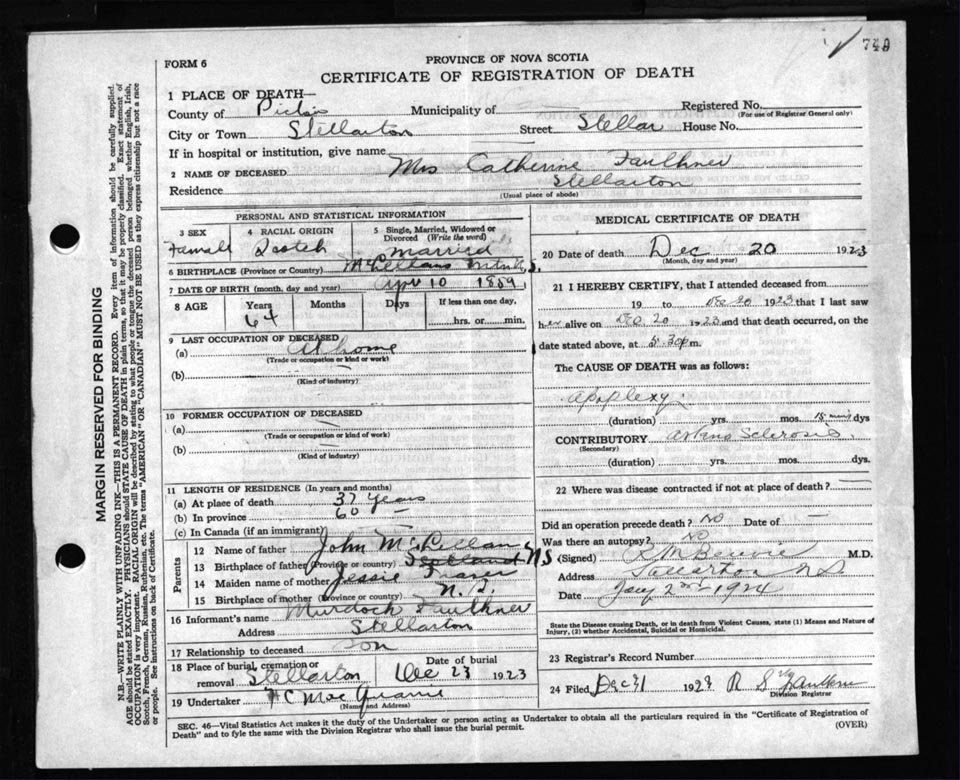 749
FORM 6
PROVINCE OF NOVA SCOTIA
CERTIFICATE OF REGISTRATION OF DEATH
1 PLACE OF DEATH—
County of Pictou Municipality of Registered No.
(For use of Registrar General only)
City or Town Stellarton Street Stellar House No.
If in hospital or institution, give name
2 NAME OF DECEASED Mrs Catherine Faulkner
Residence Stellarton
(Usual place of abode)
PERSONAL AND STATISTICAL INFORMATION
3 SEX 4 RACIAL ORIGIN 5 Single, Married, Widowed or Divorced (Write the word)
Femall Scotch Married
6 BIRTHPLACE (Province or Country) McLellans N.S.
7 DATE OF BIRTH (month, day and year) Apr 10 1859
8 AGE Years Months Days If less than one day,
64 hrs. or min.
9 LAST OCCUPATION OF DECEASED
(a) At home
(Trade or occupation or kind or work)
(b)
(Kind of industry)
10 FORMER OCCUPATION OF DECEASED
(a)
(Trade or occupation or kind of work)
(b)
(Kind of industry)
11 LENGTH OF RESIDENCE (In years and months)
(a) At place of death 37 years
(b) In province 60 —
(c) In Canada (if an immigrant)
Parents
12 Name of father John McLellan
13 Birthplace of father (Province or Country) Scotland N S
14 Maiden name of mother Jessie Fraser
15 Birthplace of mother (Province or Country) N. S.
16 Informant's name Murdoch Faulkner
Address Stellarton
17 Relationship to deceased Son
18 Place of burial, cremation or removal Stellarton Date of burial Dec 23 1923
19 Undertaker
(Name and Address)
MEDICAL CERTIFICATE OF DEATH
20 Date of death Dec 20 1923
(Month, day and year)
21 I HEREBY CERTIFY, that I attended deceased from
19 to Dec 20 1923 that I last saw
her alive on Dec 20 1923 and that death occurred, on the
date stated above, at 5.30 p m.
The CAUSE OF DEATH was as follows:
Apoplexy
(duration) yrs. mos. 15 mins dys
CONTRIBUTORY Arterio Sclerosis
(Secondary)
(duration) yrs. mos. dys.
22 Where was disease contracted if not at place of death? —
Did an operation precede death? No Date of —
Was there an autopsy? No
(Signed) M.D.
Address Stellarton N.S.
Date Jany 2nd 1924
State the Disease causing Death, or in death from Violent Causes, state (1) Means and Nature of
Injury, (2) whether Accidental, Suicidal or Homicidal.
23 Registrar's Record Number
24 Filed Dec 31 192 R S Faulkner
Division Registrar
SEC. 46—Vital Statistics Act makes it the duty of the Undertaker or person acting as Undertaker to obtain all the particulars required in the "Certificate of Registration of
Death" and to fyle the same with the Division Registrar who shall issue the burial permit.
(OVER)
MARGIN RESERVED FOR BINDING
N.B.—WRITE PLAINLY WITH UNFADING INK—THIS IS A PERMANENT RECORD. Every item of information should be carefully supplied.
AGE should be stated EXACTLY. PHYSICIANS should STATE CAUSE OF DEATH in plain terms, so that it may be properly classified. Exact statement of
OCCUPATION is very important. RACIAL ORIGIN will be described by stating to what people or tongue the deceased person belonged whether English, Irish,
Scotch, French, German, Russian, Ruthenian, etc. The terms "AMERICAN" OR "CANADIAN" MUST NOT BE USED as they express citizenship but not a race
or people. See instructions on back of Certificate.